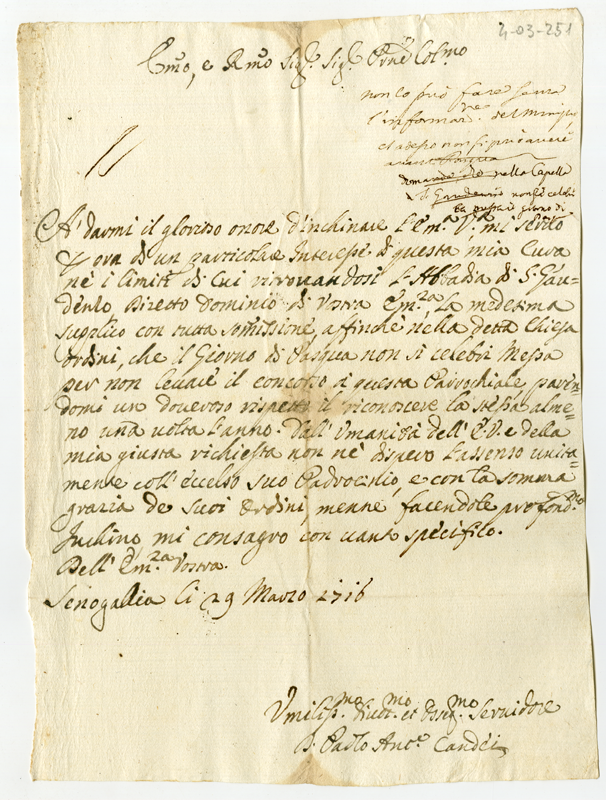 4-03-251
Emo, e Rmo Sigr. Sigr. Prne Colmo
non lo può fare senza
l'informare del Ministro,
et adesso non si può avere
domande che nella Capella
di S. Gaudenzio non si celebri
la messa il giorno di
A' darmi il glorioso onore d'inchinare l'Em.a V.ra mi serito
p ora di un particolare Interesse di questa mia Cura
nè i limiti di cui ritrovandosi l'Abbadia di S. Gau=
denzo Diretto Dominio di Vostra Em.za, La medesima
supplico con tutta somissione, affinche nella detta Chiesa
ordini, che il Giorno di Pasqua non si celebri Messa
per non levare il concorso di questa Parochiale, paren=
domi un doveroso rispetto il riconoscere la stessa alme=
no una volta l'anno. Dall'Umanità dell'E.V. e della
mia giusta richiesta non nè dispero l'assenso unita=
mente coll'eccelso suo Padrocinio, e con la somma
grazia de suoi ordini, mentre facendole profond.mo
Inchino mi consagro con vanto specifico.
Dell'Em.za Vostra.
Senogallia li 29 Marzo 1716
Umiliss.mo divot.mo et osseq.mo Servidore
D. Paolo Ant.o Candei